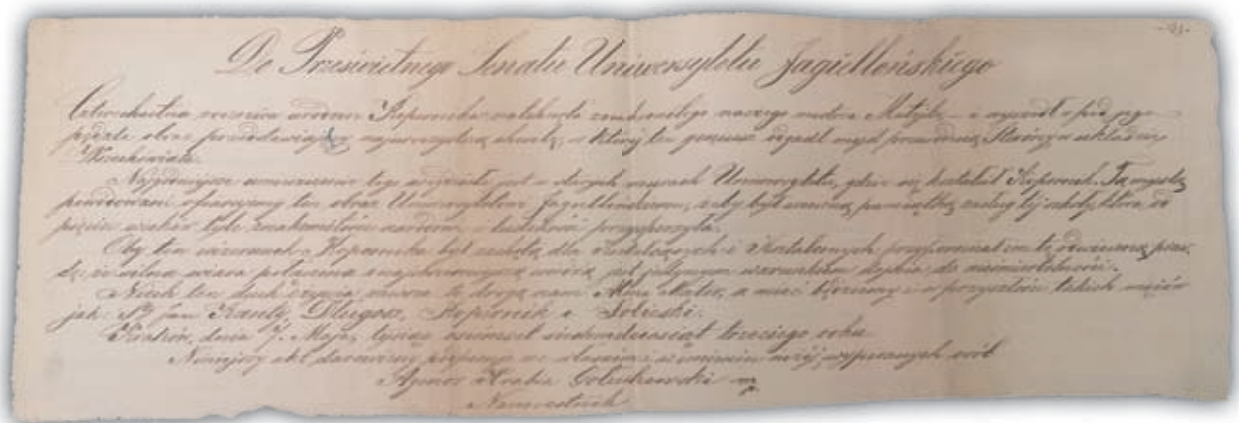 Do Prześwietnego Senatu Uniwersytetu Jagiellońskiego
Czterechsetna rocznica urodzin Kopernika natchnęła znakomitego naszego mistrza Matejkę – i wywiódł spod jego
pędzla obraz przedstawiający najuroczystszą chwilę, w której ten geniusz odgadł myśl przedwieczną Stwórcy w układzie
Wszechświata.
Najgodniejsze umieszczenie tego arcydzieła jest w starych murach Uniwersytetu, gdzie się kształcił Kopernik. Tą myślą
powodowani ofiarujemy ten obraz Uniwersytetowi Jagiellońskiemu, żeby był wieczną pamiątką zasług tej szkoły, która od
pięciu wieków tyle znakomitości narodowi i ludzkości przysporzyła.
Oby ten wizerunek Kopernika był zachętą dla kształcących i kształconych, przypominając im tę odwieczną praw-
dę, że silna wiara połączona z nauką jest jedynym warunkiem dojścia do nieśmiertelności.
Niech ten duch ożywia zawsze tę drogą nam Alma Mater, a nieci i w przyszłości takich mężów
jak: Sty Jan Kanty, Długosz, Kopernik i Sobieski.
Kraków, dnia 7. Maja, tysiąc ośmset siedmdziesiąt trzeciego roku.
Niniejszy akt darowizny podpisuję we własnem i w imieniu niżej wypisanych osób
Agenor Hrabia Gołuchowski mp
Namiestnik